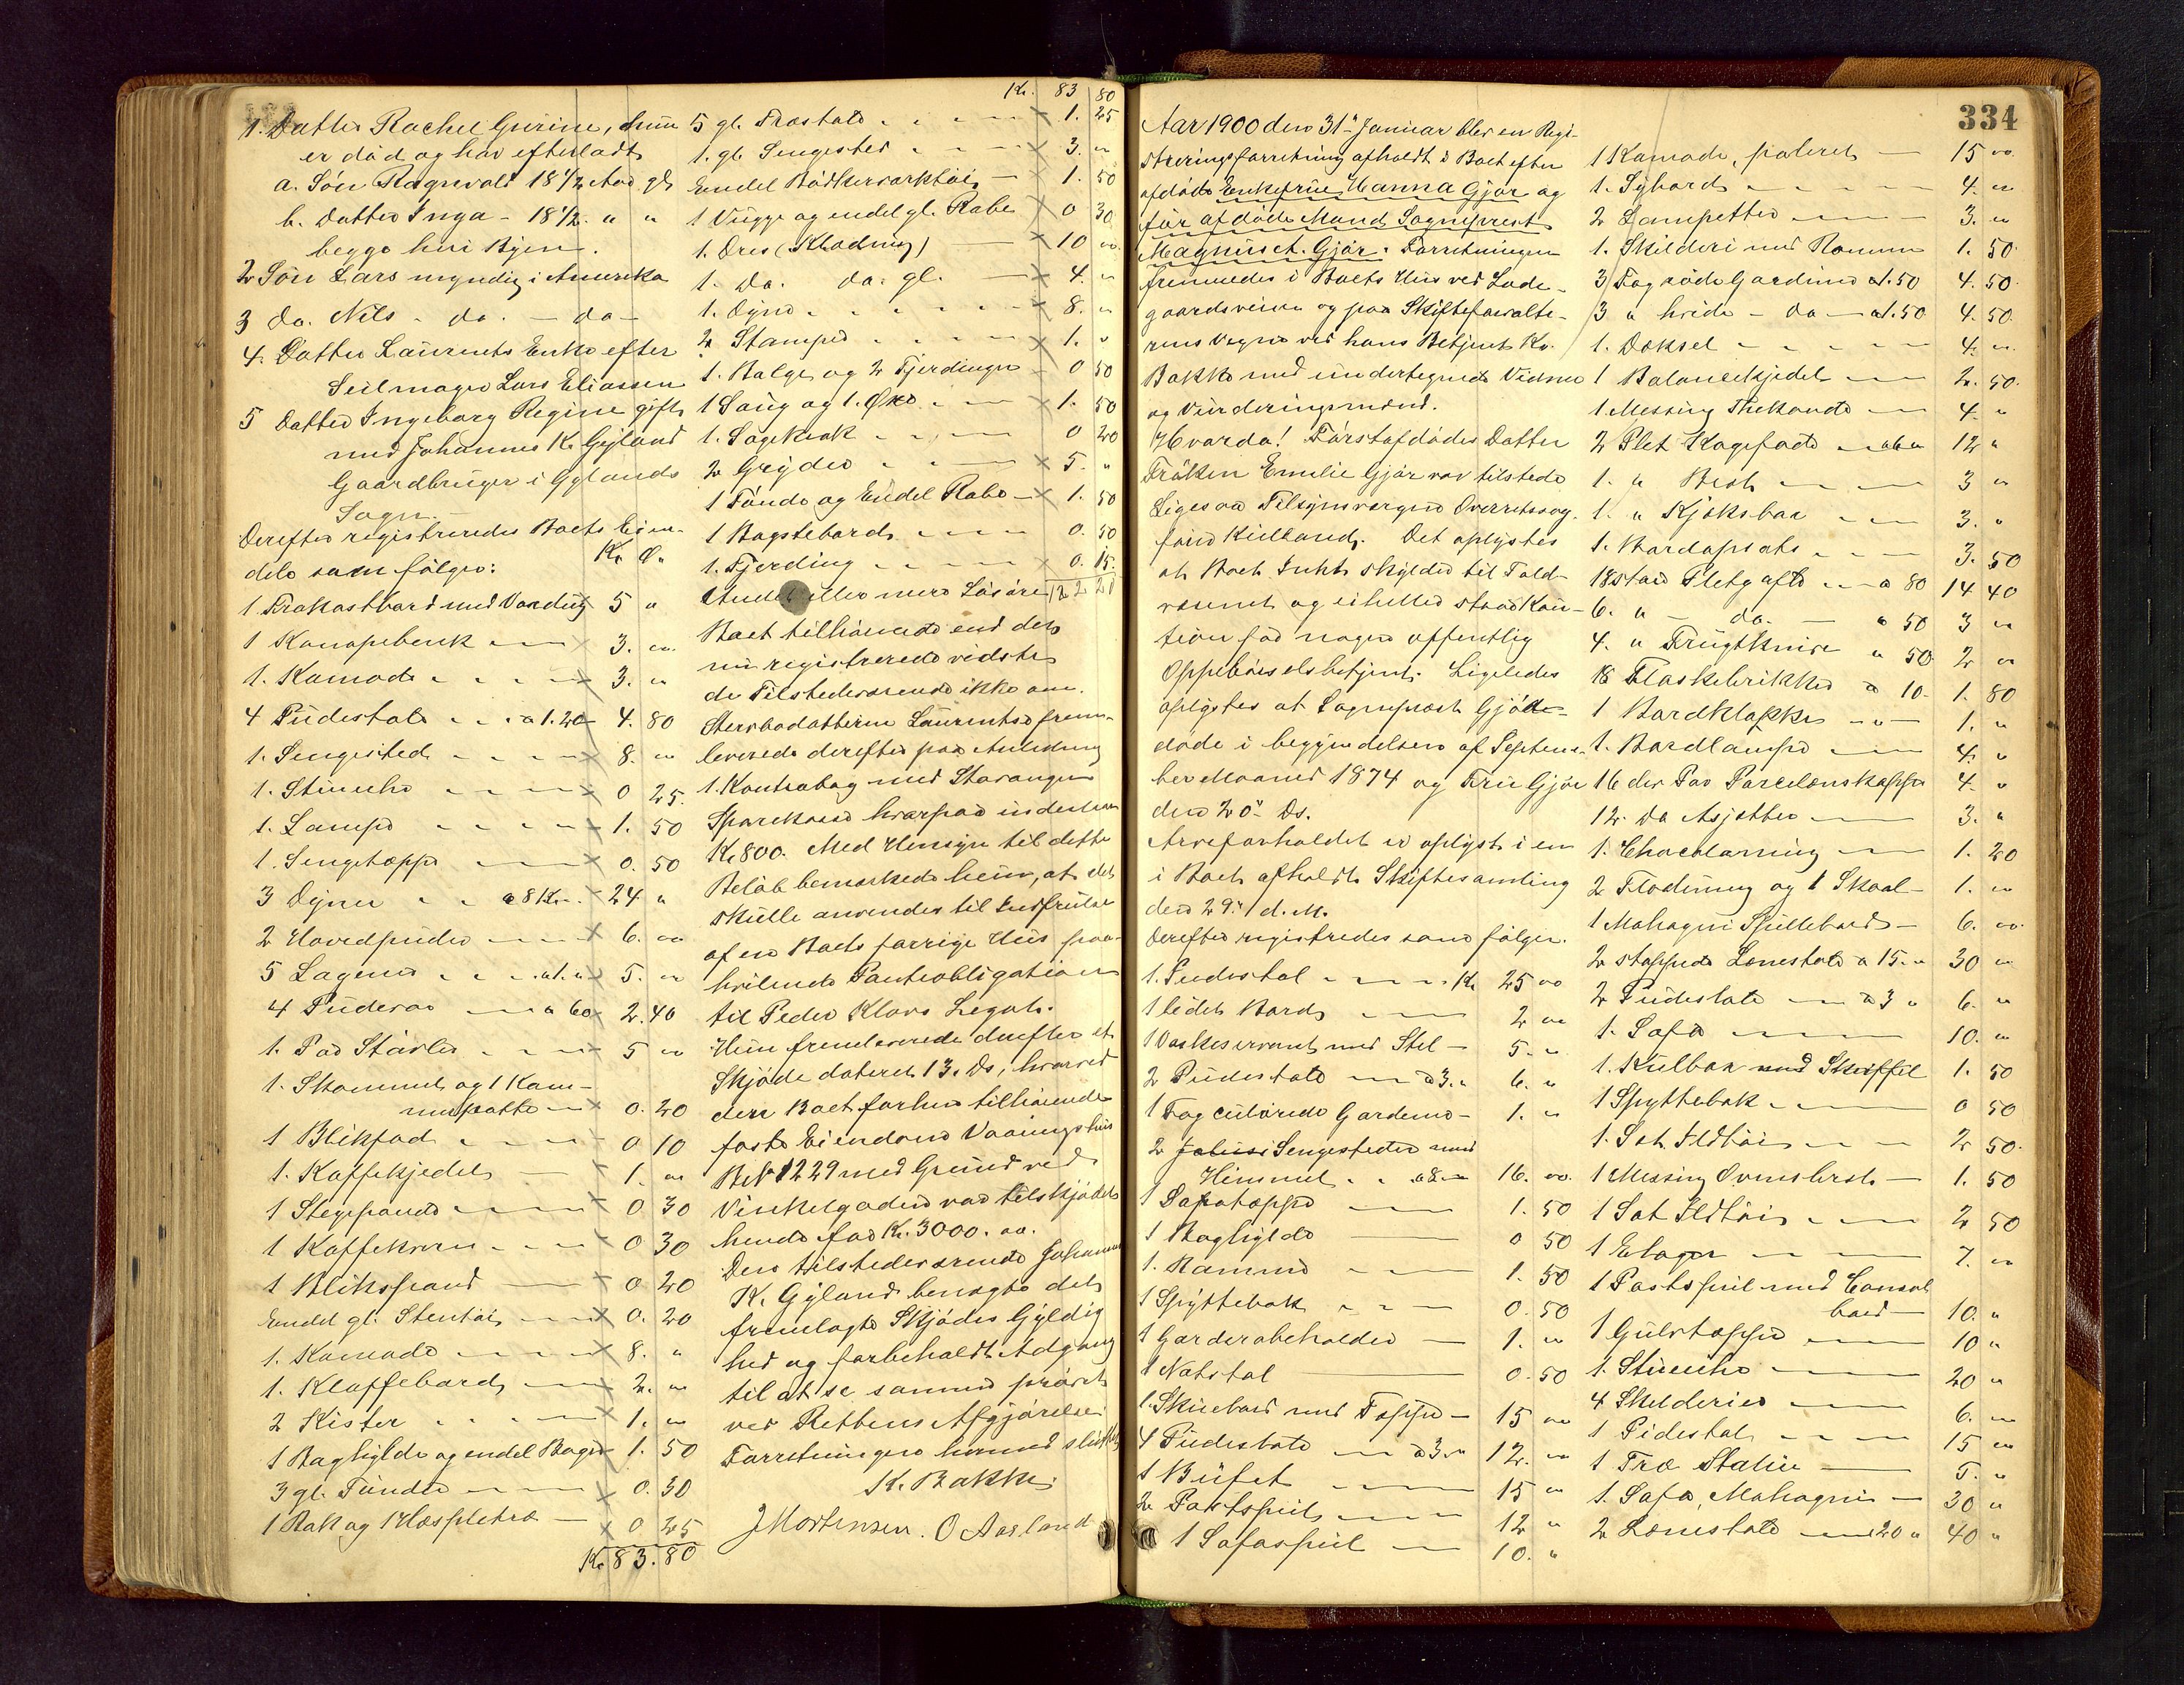 1. Datter Rachel Gurine, hun
er död og har efterladt
a. Sön Ragnvald 18 1/2 Aar gl.
b. Datter Inga - 18 1/2 " "
begge her i Byen.
2 Sön Lars myndig i Amerika
3 do. Nils - do. - do -
4. Datter Laurents Enke efter
Seilmager Lars Eliassen
5 Datter Ingeborg Regine gift
med Johannes K. Gyland
Gaardbruger i Gylands
Sogn.
Derefter registreredes Boets Eien-
dele som fölger: Kr. Ø.
1 Frokostbord med Voxdug 5 "
1 Kanapebenk 3. "
1. Komode 3. "
4 Pudestole a 1.20 4. 80
1. Sengested 8. "
1. Stueuhr 0 25.
1. Lampe 1. 50
1. Sengetæppe 0. 50
3 Dyner a 8 Kr. 24 "
2 Hovedpuder 6. "
5 Lagener a 1. " 5. "
4 Pudevar a 60 2.40
1. Par Stövler 5 "
1. Skammel og 1 Kam-
merpotte 0. 20
1 Blikfad 0 10
1. Kaffekjedel 1. "
1 Stegepande 0 30
1 Kaffekvern 0 30
1 Blikspand 0 20
Endel gl. Stentöi 0. 20
1. Komode 8. "
1. Klaffebord 2. "
2 Kister 1. "
1 Boghylde og endel Böger 1. 50
3 gl. Tönder 0. 30
1 Rok og 1 Haspletræ 0 25
Kr. 83. 80
Kr. 83 80
5 gl. Træstole 1. 25
1. gl. Sengested 3. "
Endel Bödkerværktöi 1. 50
1 Vugge og endel gl. Rabe 0 30
1. Ovn (Kladning) 10 "
1. Do. do. gl. 4. "
1. Dyne 8. "
2 Stamper 1. "
1. Balge og 2 Fjerdinger 0 50
1 Saug og 1. Øxe 1. 50
1. Sagkrak 0 20
2 Gryder 5. "
1 Tönde og Endel Rabe 1. 50
1 Bagstebord 0. 50
1. Fjerding 0. 15.
122 20
Andet eller mere Lösöre
Boet tilhörende end det
nu registrerede vidste
de Tilstedeværende ikke om.
Stervbodatteren Laurentse frem-
leverede derefter paa Anledning
1. Kontrabog med Stavanger
Sparekasse hvorpaa indestaar
Kr. 800. Med Hensyn til dette
Belöb bemærkede hun, at det
skulle anvendes til Indfrielse
af en Boets forrige Hus paa-
hvilende Pantobligation
til Peder Klovs Legat.
Hun fremleverede derefter et
Skjöde dateret 13. Ds, hvorved
den Boet forhen tilhörende
faste Eiendom Vaaningshus
B.N. 1229 med Grund ved
Vinkelgaden var tilskjödet
hende for Kr. 3000. oo.
Den tilstedeværende Johannes
K. Gyland benegte det
fremlagte Skjödes Gyldig
hed og forbeholdt Adgang
til at se samme prövet
ved Rettens Afgjörelse.
Forretningen hermed sluttet
K. Bakke.
J Mortensen. O Aarland
334
Aar 1900 den 31te Januar blev en Regi-
streringsforretning afholdt i Boet efter
afdöde Enkefrue Hanna Gjör og
för afdöde Mand Sogneprest
Magnus et. Gjör. Forretningen
fremmedes i Boets Hus ved Lade-
gaardsveien og paa Skifteforvalte-
rens Vegne ved hans Betjent K.
Bakke med undertegnede Vidner
og Vurderingsmænd.
Hvorda! Förstafdödes Datter
Fröken Emilie Gjör var tilstede
Ligesaa Tilsynsværge Overretssag-
förer Kielland. Det oplystes
at Boet Intet skylder til Told-
væsenet og ei heller staar Kau-
tion for nogen offentlig
Oppebörselsbetjent. Ligeledes
oplystes at Sogneprest Gjör
döde i begyndelsen af Septem-
ber Maaned 1874 og Frue Gjör
den 20de Ds.
Arveforholdet er oplyst i en
i Boet afholdt Skiftesamling
den 29de d. M.
Derefter registredes som fölger.
1. Pudestol Kr. 25 oo
1 lidet Bord 2 "
1 Vaskeservant med Stel 5. "
2 Pudestole a 3. " 6. "
1 Fag culörede Gardiner 1. "
2 Sengesteder med
Himmel a 8. " 16. oo.
1 Sofatæppe 1. 50
1 Boghylde 0 50
1. Ramme 1. 50
1 Spyttebak 0. 50
1 Garderobeholder 1. "
1 Natstol 0. 50
1. Skrivebord med Teppe 15 "
4 Pudestole a 3. " 12. "
1 Büfet 15 "
2 Portspeil 12 "
1 Sofaspeil 10. "
1 Komode, poleret 15 oo.
1. Sybord 4. "
2 Lampetter 3. "
1. Skilderi med Ramme 1. 50
3 Fag röde Gardiner a 1.50 4. 50.
3 " hvide - do - a 1.50 4. 50.
1. Döksel 4. "
1 Balancekjedel 2. 50.
1. Messing Thekande 4. "
2 Plet Kagefade a 6 " 12 "
1. " Besk 3 "
1. " Kjæksbox 3. "
1. Bordopsats 3. 50
18 store Pletgafler a 80 14 40
6. " - do. - a 50 3 "
4. " Frugtknive " 50 2 "
18 Flaskebrikker a 10 1. 80
1 Bordklokke 1. "
1. Bordlampe 4. "
16 der Par Porcelænskopper 4. "
12 do Asjetter 3. "
1. Chocolamug 1. 20
2 Flödemug og 1 Skaal 1. "
1 Mahogni Spillebord 6. oo.
2 stoppede Lænestole a 15. " 30 "
2 Pudestole a 3 " 6. "
1. Sofa 10. "
1. Kulbox med Skuffel 1. 50
1 Spyttebak 0 50
1. Set Ildtöi 2 50.
1 Messing Ovnsbrsk 1. 50
1 Set Ildtöi 2 50
1 Etager 7. "
1 Portspeil med Consol
bord 10. "
1 Gulvtæppe 10 "
1. Stueuhr 20 "
4 Skilderier 6. "
1 Pidestal 15 "
1 Træ Statue 5. "
1. Sofa, Mahogni 30 "
2 Lænestole a 20 " 40 "